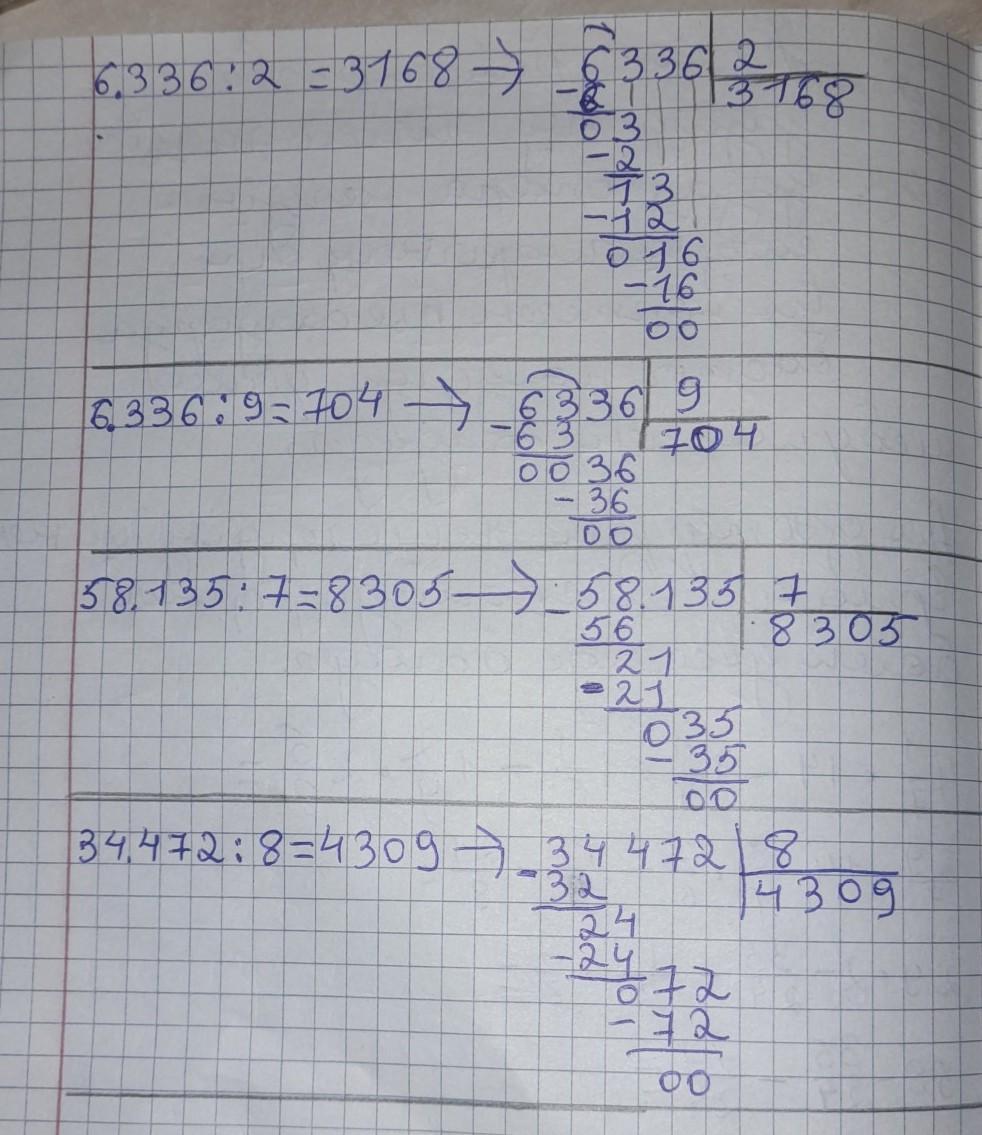 6.336:2 = 3168 → 6336 2
-6 3168
03
-2
13
-12
016
-16
00
6.336:9=704 → 6336 9
-63 704
0036
-36
00
58.135:7=8305 → 58.135 7
-56 8305
21
-21
035
-35
00
34.472:8=4309 → 34472 8
-32 4309
24
-24
072
-72
00